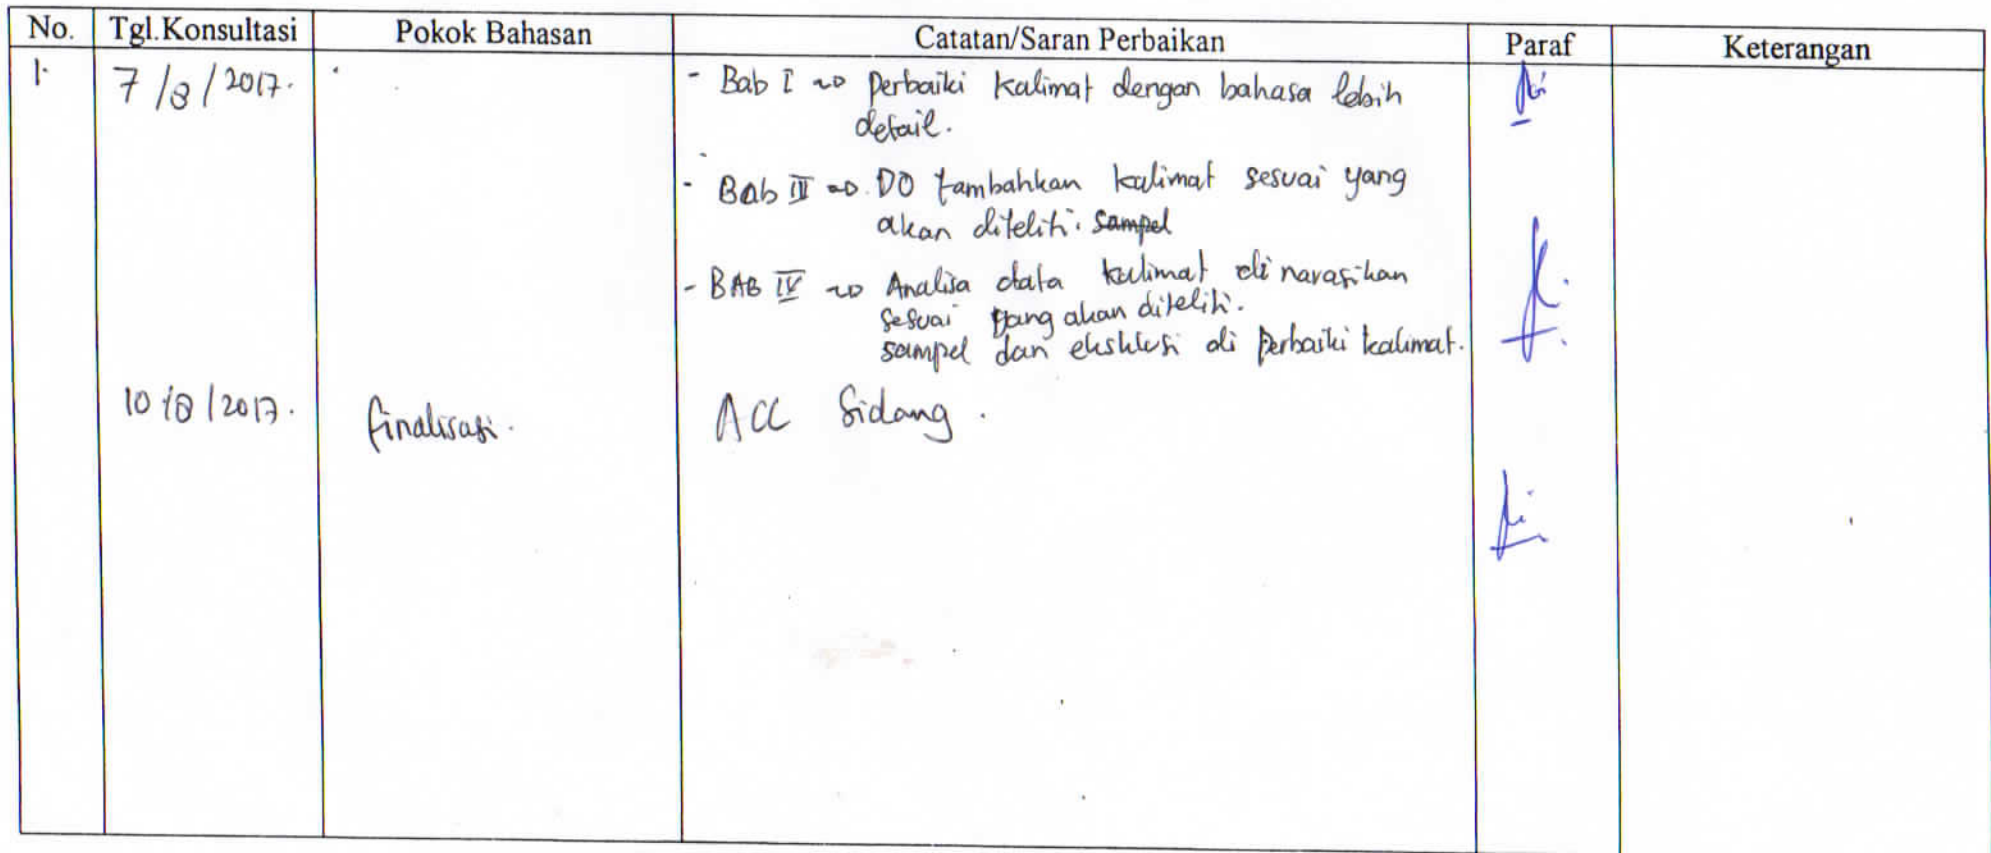 No. Tgl.Konsultasi Pokok Bahasan Catatan/Saran Perbaikan Paraf Keterangan
1. 7/8/2017. - Bab I ~> Perbaiki kalimat dengan bahasa lebih
detail.
- Bab III ~> DO tambahkan kalimat sesuai yang
akan diteliti. sampel
- BAB IV ~> Analisa data kalimat di narasikan
sesuai yang akan diteliti.
sampel dan eksklusi di perbaiki kalimat.
10/8/2017. finalisasi. ACC Sidang.